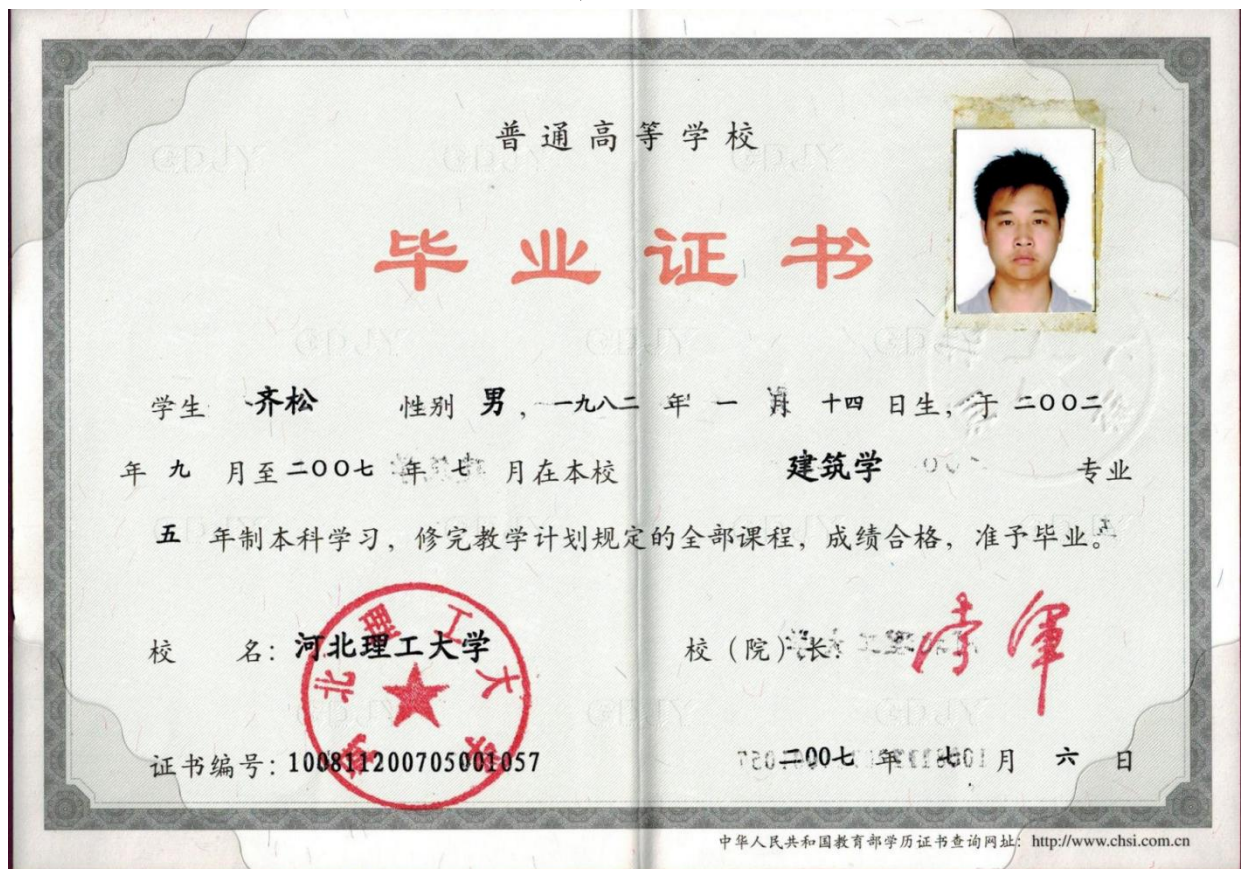 普通高等学校
毕业证书
学生 齐松 性别 男，一九八二 年 一 月 十四 日生，于 二〇〇二
年 九 月至 二〇〇七 年 七 月在本校 建筑学 专业
五 年制本科学习，修完教学计划规定的全部课程，成绩合格，准予毕业。
校 名：河北理工大学
校（院）长：
河北理工大学
证书编号：100811200705001057
二〇〇七 年 七 月 六 日
中华人民共和国教育部学历证书查询网址：http://www.chsi.com.cn